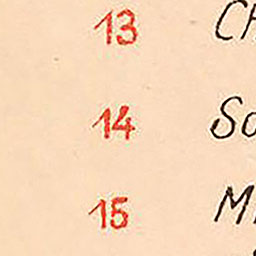 13 CH
14 So
15 M